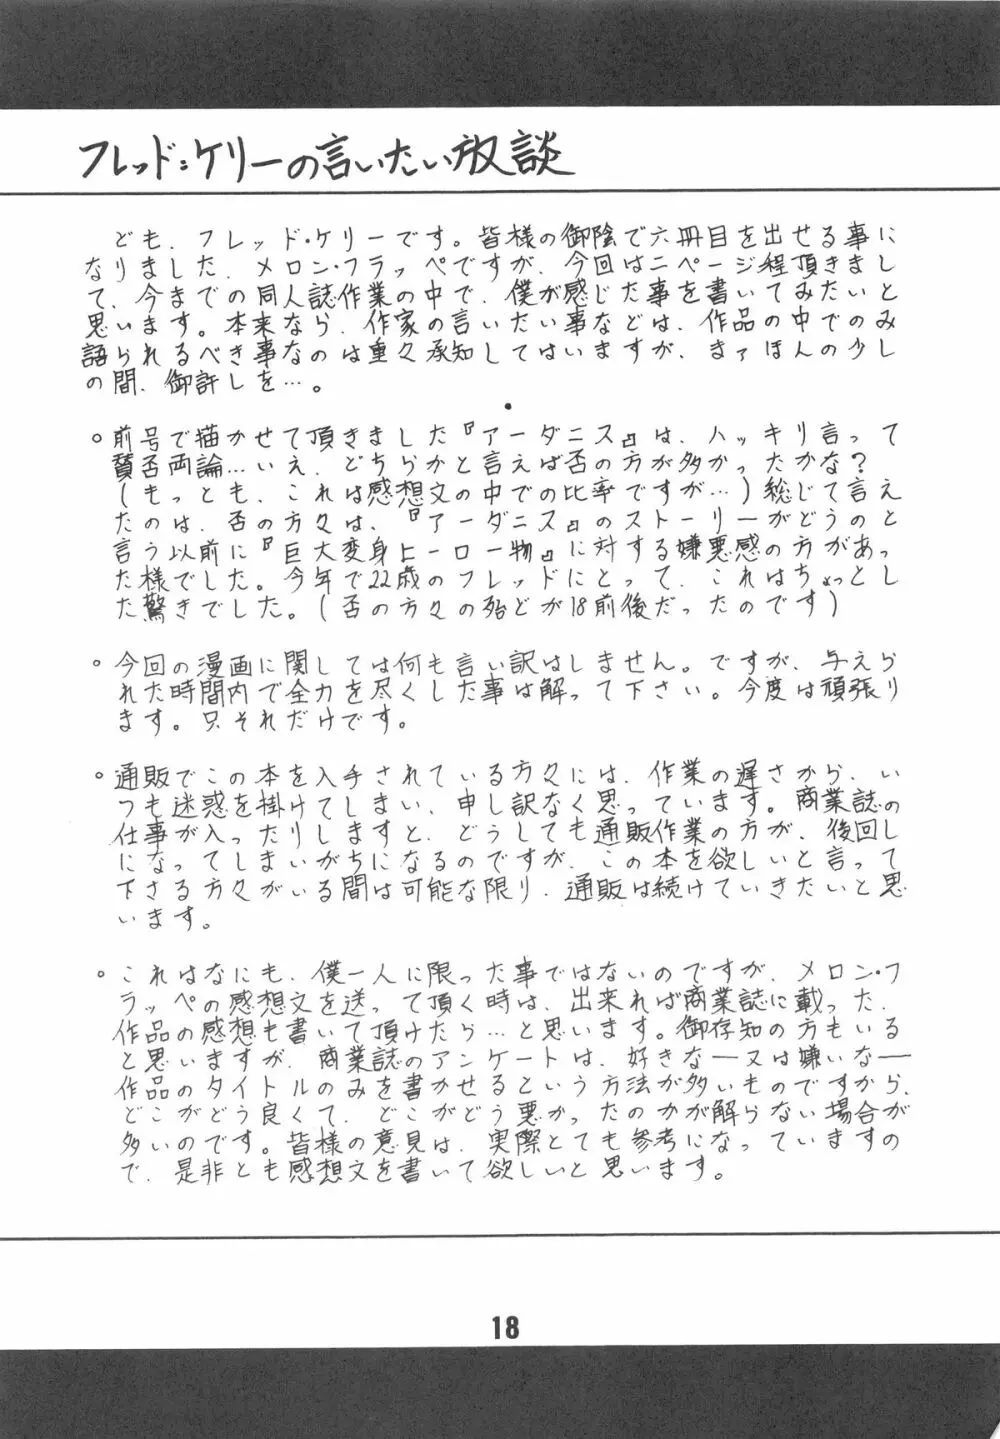 フレッド=ケリーの言いたい放談
ども、フレッド・ケリーです。皆様の御陰で六冊目を出せる事に
なりました、メロン・フラッペですが、今回は二ページ程頂きまし
て、今までの同人誌作業の中で、僕が感じた事を書いてみたいと
思います。本来なら、作家の言いたい事などは、作品の中でのみ
語られるべき事なのは重々承知してはいますが、まァほんの少し
の間、御許しを…。
・
。前号で描かせて頂きました『アーダニス』は、ハッキリ言って
賛否両論…いえ、どちらかと言えば否の方が多かったかな?
(もっとも、これは感想文の中での比率ですが…)総じて言え
たのは、否の方々は、『アーダニス』のストーリーがどうのと
言う以前に『巨大変身ヒーロー物』に対する嫌悪感の方があっ
た様でした。今年で22歳のフレッドにとって、これはちょっとし
た驚きでした。(否の方々の殆どが18前後だったのです)
。今回の漫画に関しては何も言い訳はしません。ですが、与えら
れた時間内で全力を尽くした事は解って下さい。今度は頑張り
ます。只それだけです。
。通販でこの本を入手されている方々には、作業の遅さから、い
つも迷惑を掛けてしまい、申し訳なく思っています。商業誌の
仕事が入ったりしますと、どうしても通販作業の方が、後回し
になってしまいがちになるのですが、この本を欲しいと言って
下さる方々がいる間は可能な限り、通販は続けていきたいと思
います。
。これはなにも、僕一人に限った事ではないのですが、メロン・フ
ラッペの感想文を送って頂く時は、出来れば商業誌に載った、
作品の感想も書いて頂けたら…と思います。御存知の方もいる
と思いますが、商業誌のアンケートは、好きな―又は嫌いな―
作品のタイトルのみを書かせるという方法が多いものですから、
どこがどう良くて、どこがどう悪かったのかが解らない場合が
多いのです。皆様の意見は、実際とても参考になっていますの
で、是非とも感想文を書いて欲しいと思います。
18